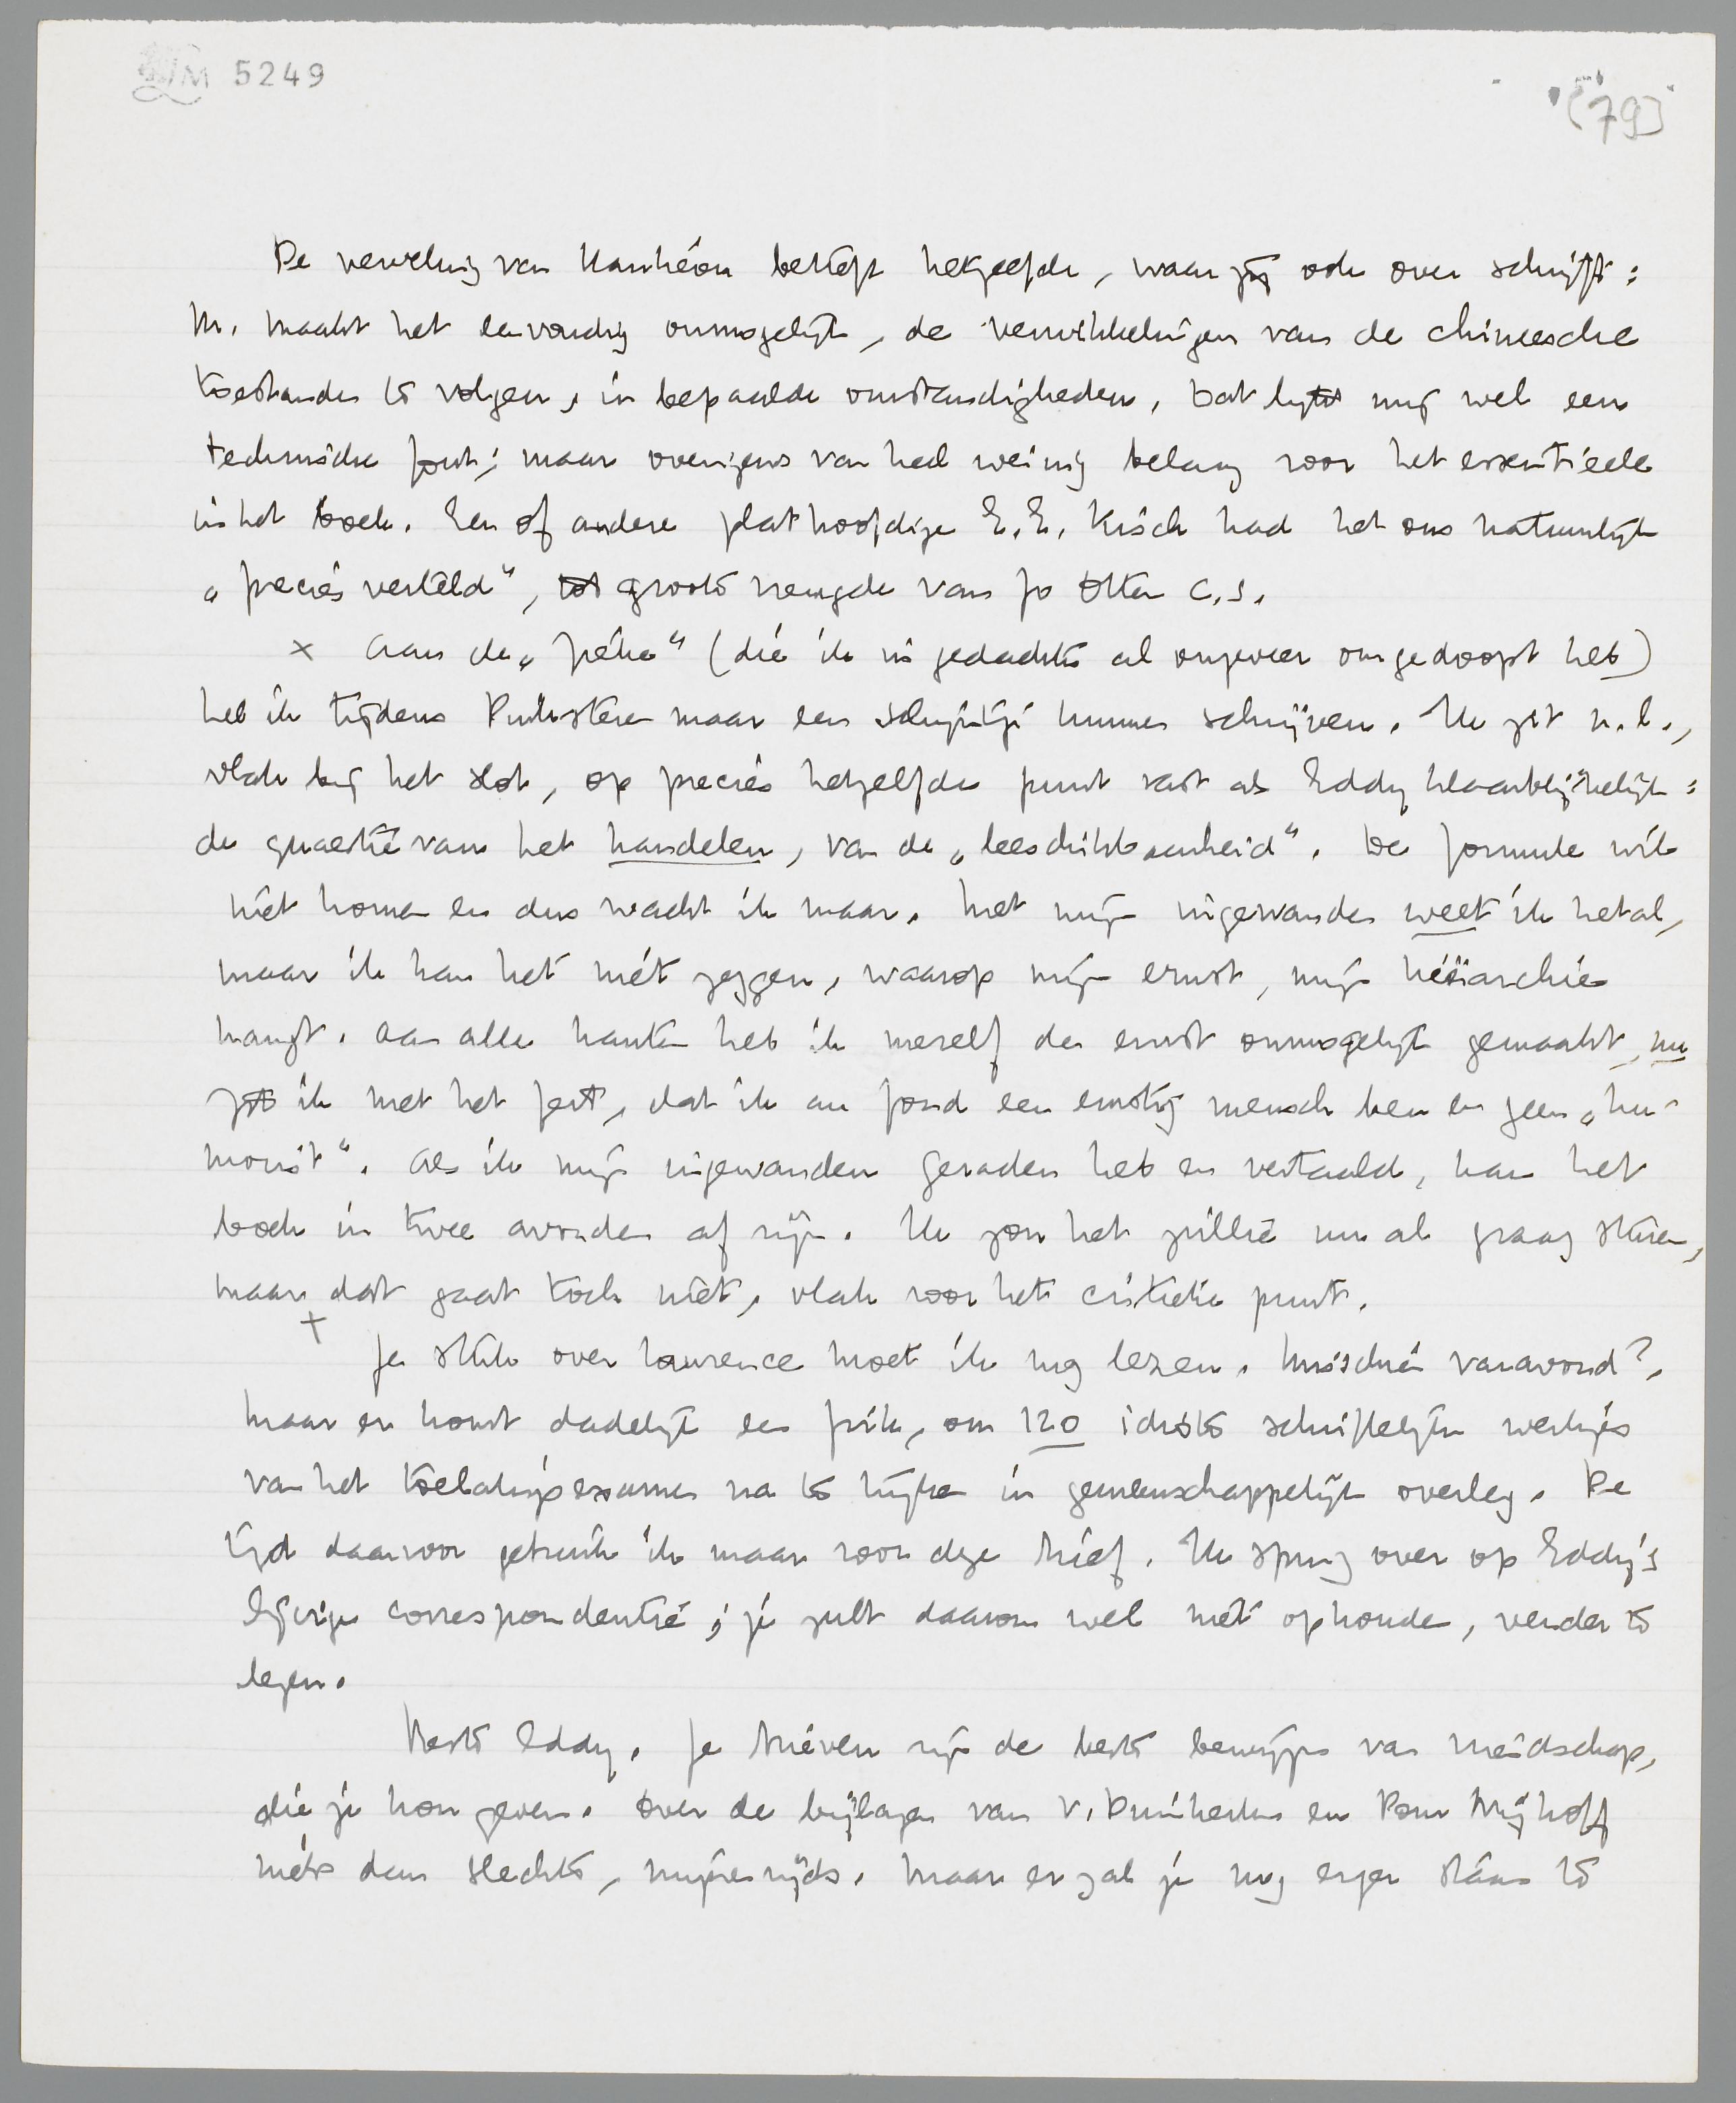 LM 5249
[79]
De verveling van Hanhéou betreft hetzelfde, waar jij ook over schrijft:
M. maakt het eenvoudig onmogelijk, de verwikkelingen van de chineesche
toestanden te volgen, in bepaalde omstandigheden. Dat lijkt mij wel een
technische fout; maar overigens van heel weinig belang voor het essentieele
in het boek. Een of andere plathoofdige E.E. Kisch had het ons natuurlijk
„precies verteld", tot groote vreugde van Jo Otten c.s.
x Aan de „Péka" (die ik in gedachte al ongeveer omgedoopt heb)
heb ik tijdens Pinksteren maar een schijntje kunnen schrijven. Ik zit n.l.,
vlak bij het slot, op precies hetzelfde punt vast als Eddy klaarblijkelijk:
de quaestie van het handelen, van de „beschikbaarheid". De formule wil
niet komen en dus wacht ik maar. Met mijn ingewanden weet ik het al,
maar ik kan het niet zeggen, waarop mijn ernst, mijn hiërarchie
hangt. Aan alle kanten heb ik mezelf de ernst onmogelijk gemaakt, nu
zit ik met het feit, dat ik au fond een ernstig mensch ben en geen „hu-
morist". Als ik mijn ingewanden geraden heb en vertaald, kan het
boek in twee avonden af zijn. Ik zou het jullie nu al graag sturen,
maar dat gaat toch niet, vlak voor het critieke punt.
+
Je stuk over Lawrence moet ik nog lezen. Misschien vanavond?.
Maar er komt dadelijk een frik, om 120 idiote schriftelijke werkjes
van het toelatingsexamen na te kijken in gemeenschappelijk overleg. De
tijd daarvoor gebruik ik maar voor deze brief. Ik spring over op Eddy's
lijvige correspondentie; je zult daarom wel niet ophouden, verder te
lezen.
Beste Eddy. Je brieven zijn de beste bewijzen van vriendschap,
die je kon geven. Over de bijlagen van v. Duinkerken en Pom Nijhoff
niets dan slechts, mijnerzijds. Maar er zal je nog erger staan te